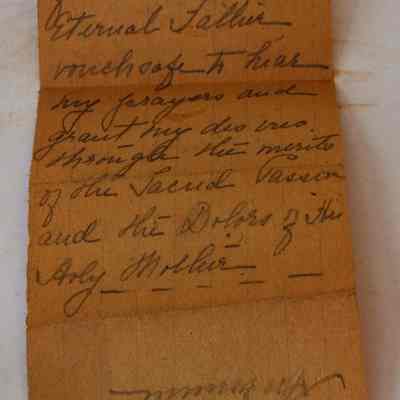 Eternal Father
vouchsafe to hear
my prayers and
grant my desires.
through the merits
of the Sacred Passion
and the Dolors of His
Holy Mother